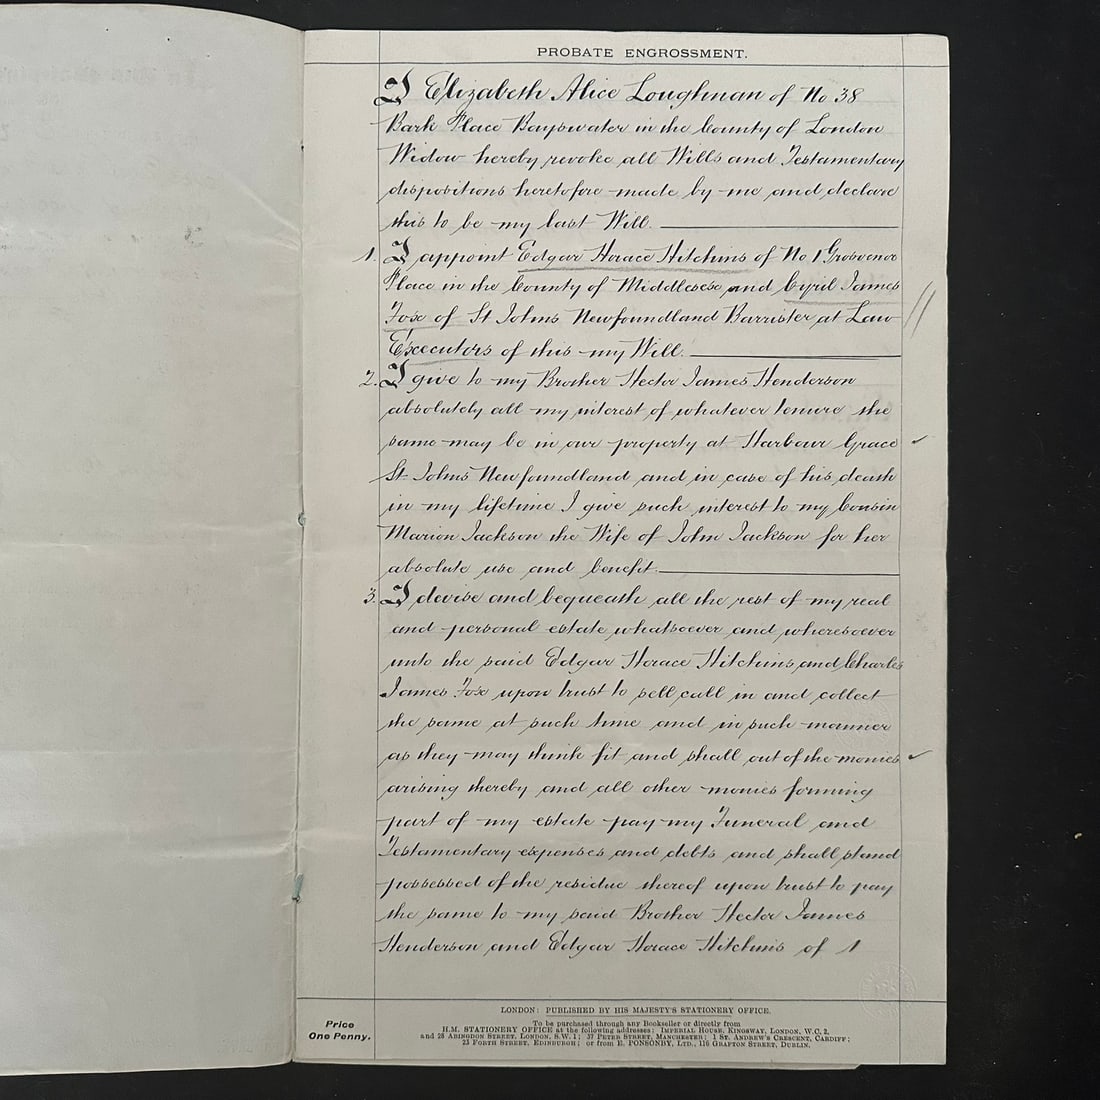 PROBATE ENGROSSMENT.
I Elizabeth Alice Loughman of No 38
Park Place Bayswater in the County of London
Widow hereby revoke all Wills and Testamentary
dispositions heretofore made by me and declare
this to be my last Will.
1. I appoint Edgar Horace Hitchins of No 1 Grosvenor
Place in the County of Middlesex and Cyril James
Fox of St Johns Newfoundland Barrister at Law
Executors of this my Will.
2. I give to my Brother Hector James Henderson
absolutely all my interest of whatever tenure the
same may be in our property at Harbour Grace
St Johns Newfoundland and in case of his death
in my lifetime I give such interest to my Cousin
Marion Jackson the Wife of John Jackson for her
absolute use and benefit.
3. I devise and bequeath all the rest of my real
and personal estate whatsoever and wheresoever
unto the said Edgar Horace Hitchins and Charles
James Fox upon trust to sell call in and collect
the same at such time and in such manner
as they may think fit and shall out of the monies
arising thereby and all other monies forming
part of my estate pay my Funeral and
Testamentary expenses and debts and shall stand
possessed of the residue thereof upon trust to pay
the same to my said Brother Hector James
Henderson and Edgar Horace Hitchins of 1
LONDON: PUBLISHED BY HIS MAJESTY'S STATIONERY OFFICE.
To be purchased through any Bookseller or directly from
H.M. STATIONERY OFFICE at the following addresses: IMPERIAL HOUSE, KINGSWAY, LONDON, W.C. 2,
and 28 ABINGDON STREET, LONDON, S.W. 1; 37 PETER STREET, MANCHESTER; 1 ST. ANDREW'S CRESCENT, CARDIFF;
23 FORTH STREET, EDINBURGH; or from E. PONSONBY, LTD., 116 GRAFTON STREET, DUBLIN.
Price
One Penny.